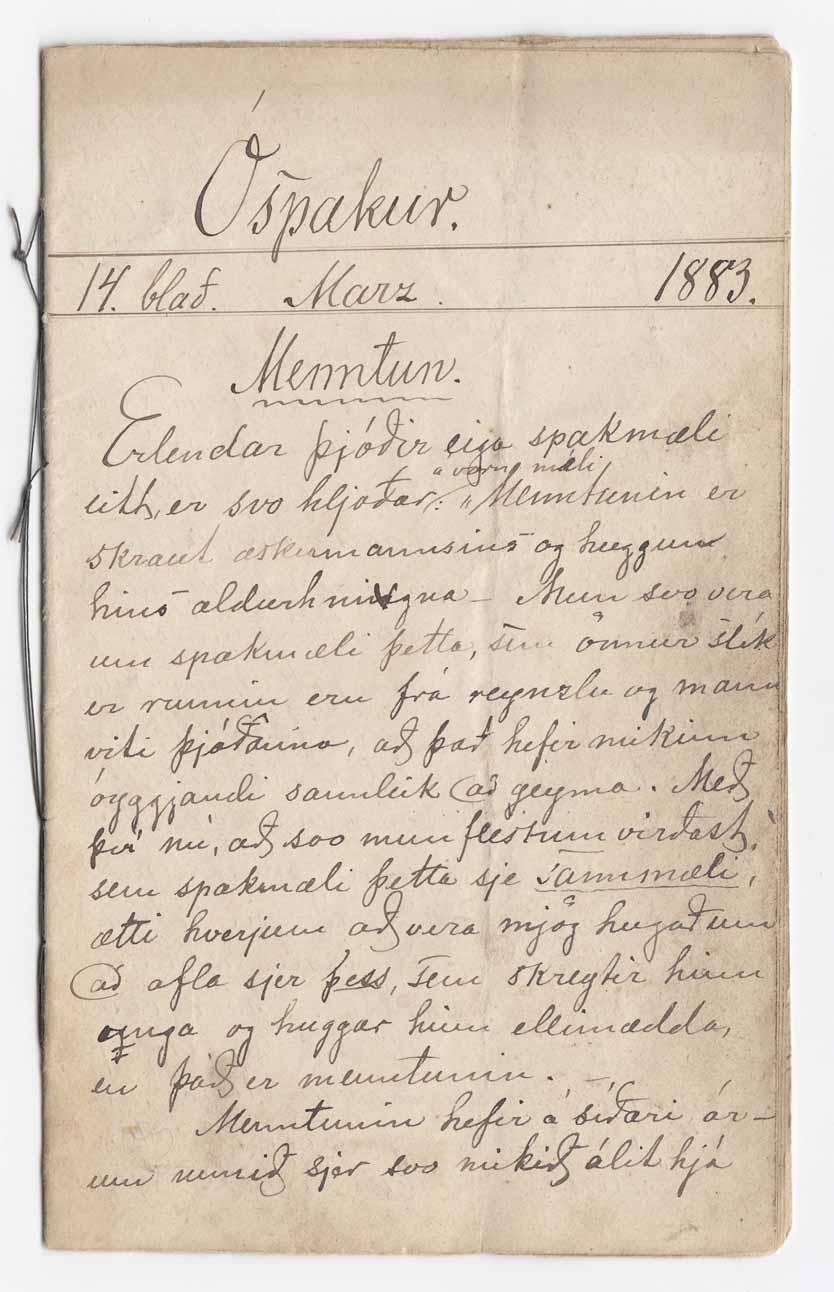 Óspakur.
14. blað. Marz. 1883.
Menntun.
Erlendar þjóðir eiga spakmæli
á voru máli
eitt, er svo hljóðar: „Menntunin er
skraut æskumannsins og huggun
hins aldurhnigna – Mun svo vera
um spakmæli þetta, sem önnur slík
er runnin eru frá reynzlu og mann
viti þjóðanna, að það hefir mikinn
óyggjandi sannleik að geyma. Með
því nú, að svo mun flestum virðast,
sem spakmæli þetta sje sannmæli,
ætti hverjum að vera mjög hugað um
að afla sjer þess, sem skreytir hinn
unga og huggar hinn ellimædda,
en það er menntunin. –
Menntunin hefir á síðari ár-
um unnið sjer svo mikið álit hjá